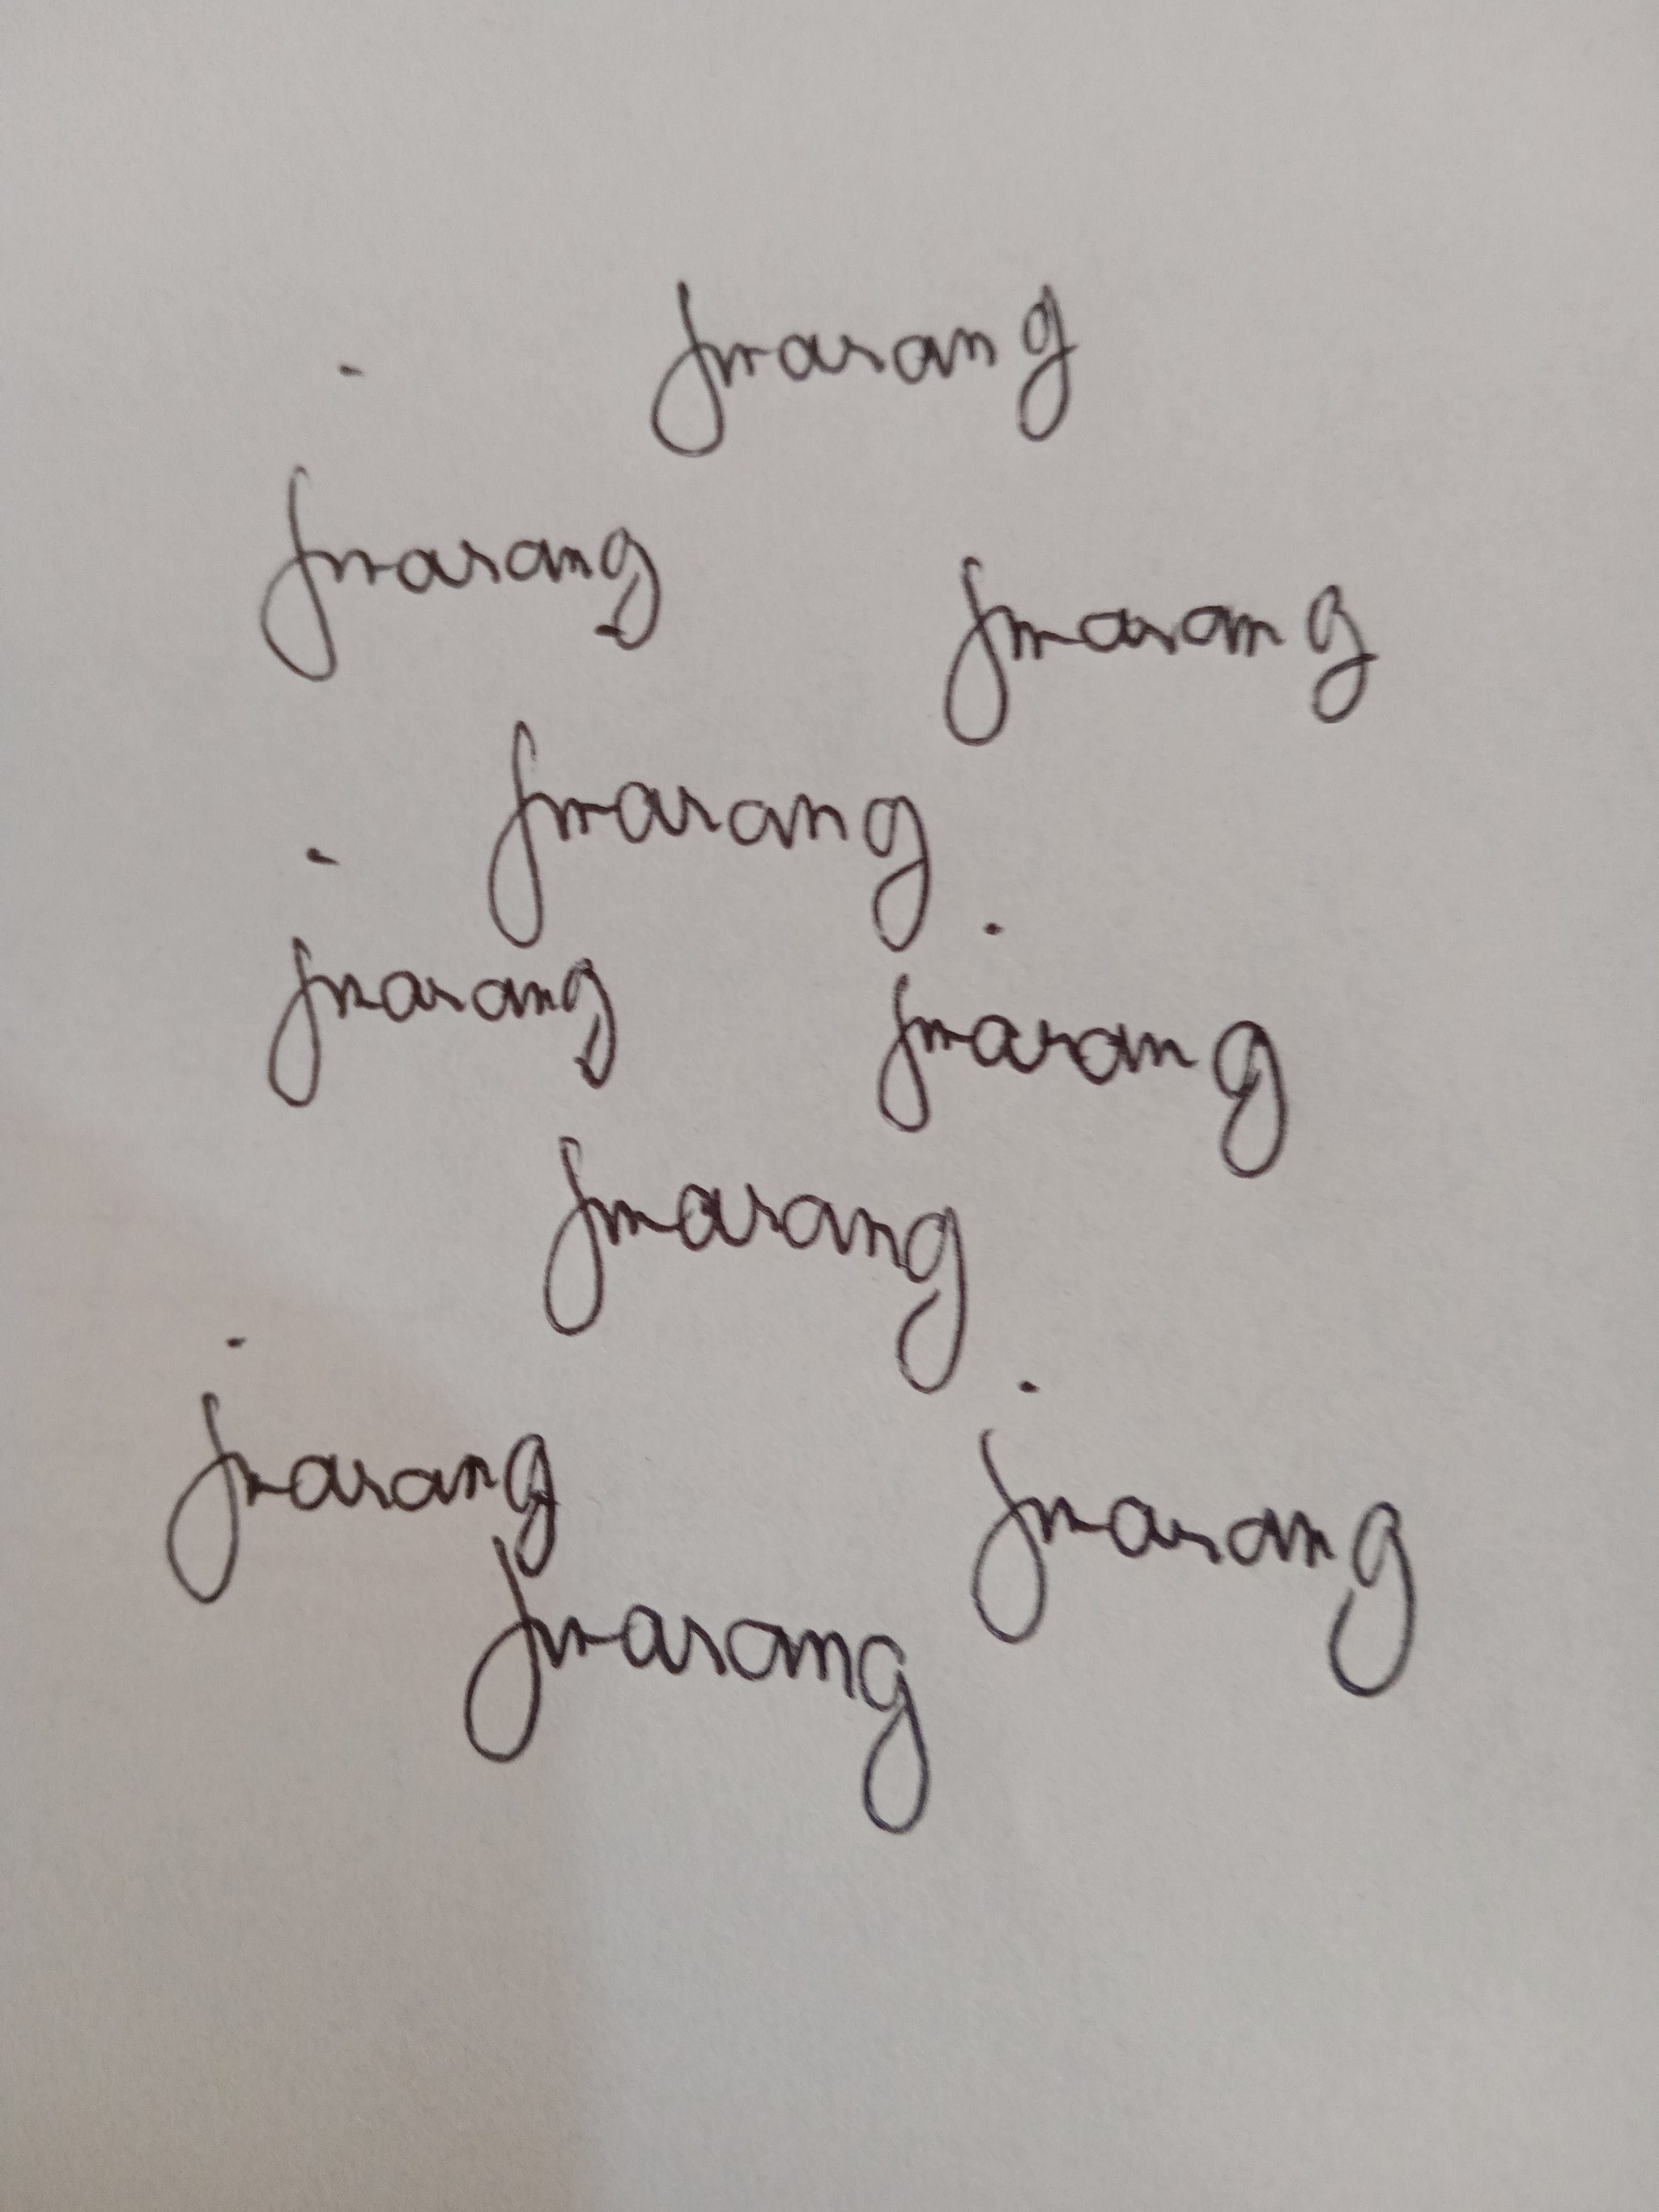 jmarang
jmarang
jmarang
jmarang
jmarang
jmarang
jmarang
jmarang
jmarang
jmarang